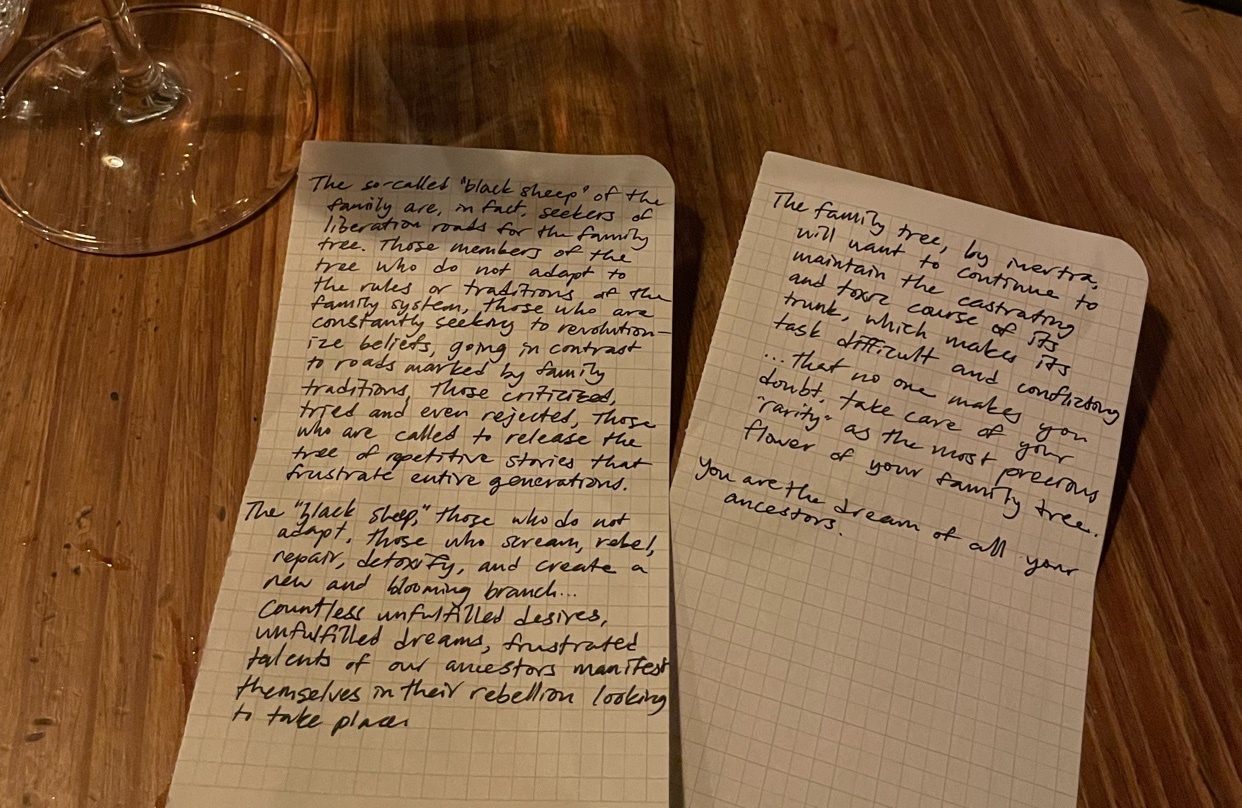 The so-called "black sheep" of the
family are, in fact, seekers of
liberation roads for the family
tree. Those members of the
tree who do not adapt to
the rules or traditions of the
family system, those who are
constantly seeking to revolution-
ize beliefs, going in contrast
to roads marked by family
traditions, those criticized,
tried and even rejected, those
who are called to release the
tree of repetitive stories that
frustrate entire generations.
The "black sheep," those who do not
adapt, those who scream, rebel,
repair, detoxify, and create a
new and blooming branch...
Countless unfulfilled desires,
unfulfilled dreams, frustrated
talents of our ancestors manifest
themselves in their rebellion looking
to take place.
The family tree, by inertia,
will want to continue to
maintain the castrating
and toxic course of its
trunk, which makes its
task difficult and conflicting
... that no one makes you
doubt, take care of your
"rarity" as the most precious
flower of your family tree.
You are the dream of all your
ancestors.